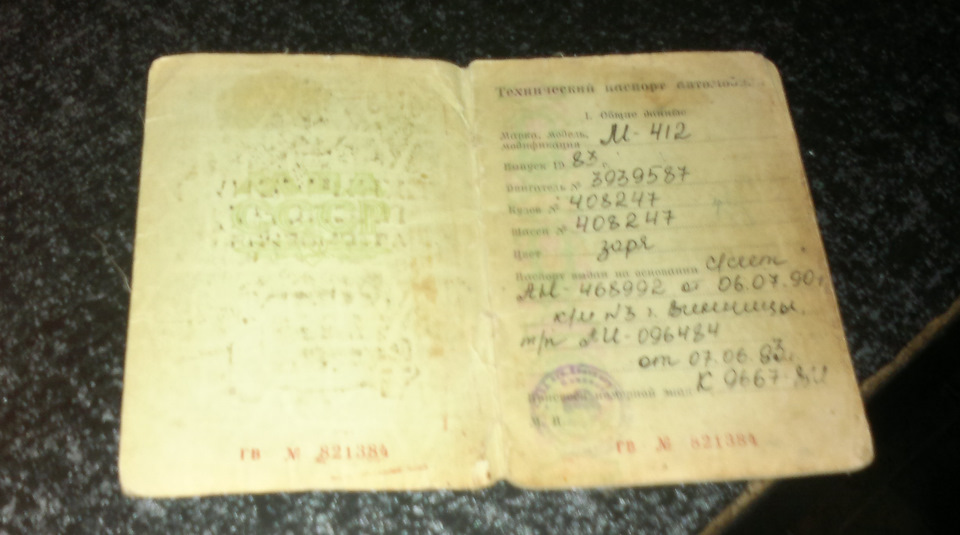 ГВ № 821384
Технический паспорт автомобиля
1. Общие данные
Марка, модель,
модификация М-412
Выпуск 19 83 г.
Двигатель № 3939587
Кузов № 408247
Шасси № 408247
Цвет заря
Паспорт выдан на основании с/счет
468992 от 06.07.90г
к/м №3 г. Винницы.
т/п АИ-096484
от 07.06.83г.
номерной знак К 9667 ВИ
М. П.
ГВ № 821384